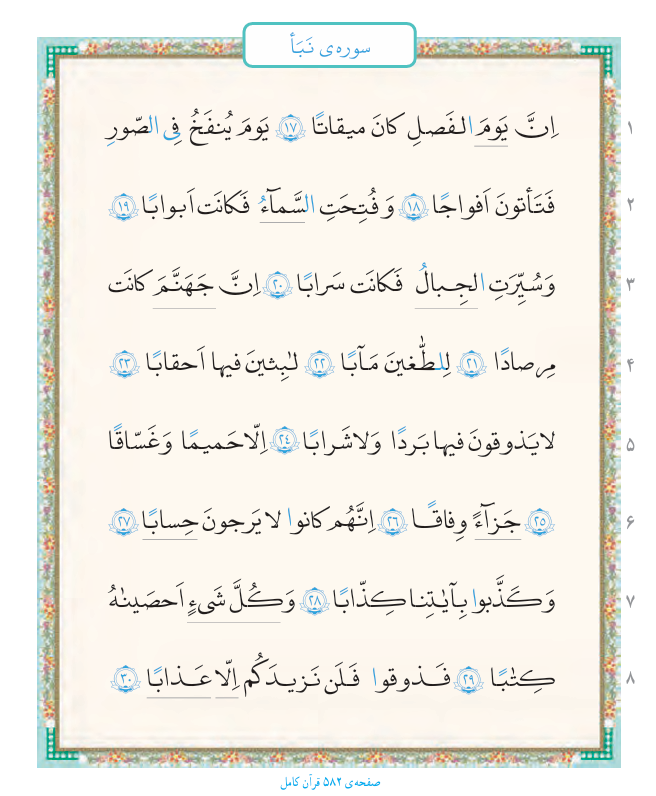 سوره‌ی نَبَأ
۱ اِنَّ يَومَ الفَصلِ كانَ ميقاتًا ﴿۱۷﴾ يَومَ يُنفَخُ فِى الصّورِ
۲ فَتَأتونَ اَفواجًا ﴿۱۸﴾ وَ فُتِحَتِ السَّمآءُ فَكانَت اَبوابًا ﴿۱۹﴾
۳ وَسُيِّرَتِ الجِبالُ فَكانَت سَرابًا ﴿۲۰﴾ اِنَّ جَهَنَّمَ كانَت
۴ مِرصادًا ﴿۲۱﴾ لِلطّٰغينَ مَـٔابًا ﴿۲۲﴾ لٰبِثينَ فيها اَحقابًا ﴿۲۳﴾
۵ لا يَذوقونَ فيها بَردًا وَلا شَرابًا ﴿۲٤﴾ اِلّا حَميمًا وَغَسّاقًا
۶ ﴿۲۵﴾ جَزآءً وِفاقًا ﴿۲۶﴾ اِنَّهُم كانوا لا يَرجونَ حِسابًا ﴿۲۷﴾
۷ وَكَذَّبوا بِـٔايٰتِنا كِذّابًا ﴿۲۸﴾ وَكُلَّ شَىءٍ اَحصَينٰهُ
۸ كِتٰبًا ﴿۲۹﴾ فَذوقوا فَلَن نَزيدَكُم اِلّا عَذابًا ﴿۳۰﴾
صفحه‌ی ۵۸۲ قرآن کامل